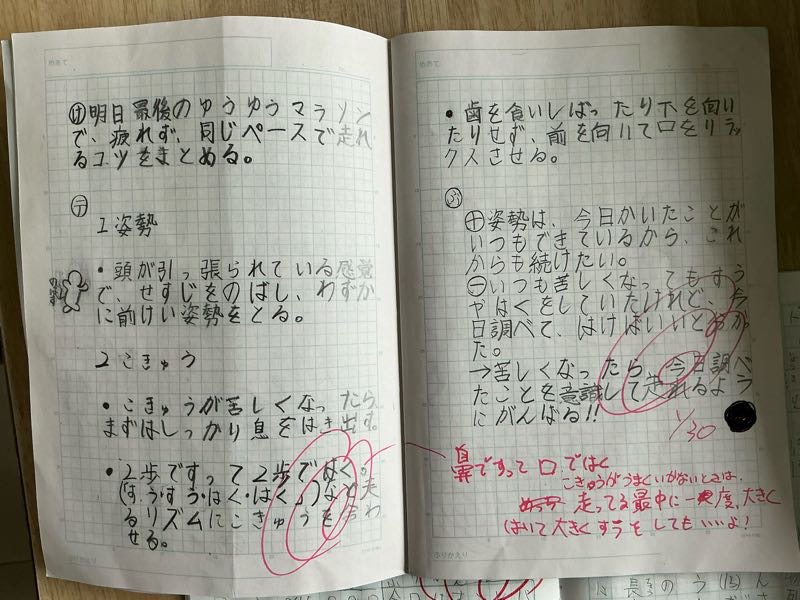 めあて
㋘明日最後のゆうゆうマラソン
で、疲れず、同じペースで走れ
るコツをまとめる。
㋢
1姿勢
・頭が引っ張られている感覚
で、せすじをのばし、わずか
に前けい姿勢をとる。
のばす
2こきゅう
・こきゅうが苦しくなったら
まずはしっかり息をはき出す。
・2歩ですって2歩ではく。
(「すう・すう・はく・はく」)など、
るリズムにこきゅうを合わ
せる。
めあて
・歯を食いしばったり下を向い
たりせず、前を向いて口をリラッ
クスさせる。
㋫
⊕姿勢は、今日かいたことが
いつもできているから、これ
からも続けたい。
⊖いつも苦しくなってもすう
やはくをしていたけれど、今
日調べて、はけばいいとわかっ
た。
→苦しくなったら、今日調べ
たことを意識して走れるよう
にがんばる!!
1/30
鼻ですって口ではく
こきゅうがうまくいかないときは、
走ってる最中に一度、大きく
はいて大きくすうをしてもいいよ!
ふりかえり
ふりかえり